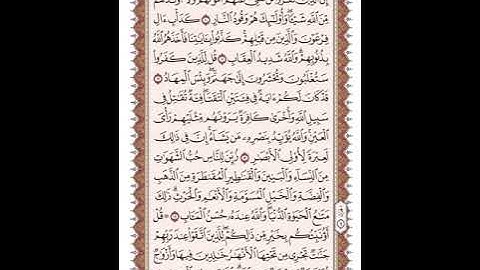 إِنَّ الَّذِينَ
مِّنَ اللَّهِ شَيْئًا وَأُولَٰئِكَ هُمْ وَقُودُ النَّارِ ۝ كَدَأْبِ ءَالِ
فِرْعَوْنَ وَالَّذِينَ مِن قَبْلِهِمْ كَذَّبُوا بِـَٔايَٰتِنَا فَأَخَذَهُمُ اللَّهُ
بِذُنُوبِهِمْ وَاللَّهُ شَدِيدُ الْعِقَابِ ۝ قُل لِّلَّذِينَ كَفَرُوا
سَتُغْلَبُونَ وَتُحْشَرُونَ إِلَىٰ جَهَنَّمَ وَبِئْسَ الْمِهَادُ ۝
قَدْ كَانَ لَكُمْ ءَايَةٌ فِي فِئَتَيْنِ الْتَقَتَا فِئَةٌ تُقَٰتِلُ فِي
سَبِيلِ اللَّهِ وَأُخْرَىٰ كَافِرَةٌ يَرَوْنَهُم مِّثْلَيْهِمْ رَأْيَ
الْعَيْنِ وَاللَّهُ يُؤَيِّدُ بِنَصْرِهِ مَن يَشَاءُ إِنَّ فِي ذَٰلِكَ
لَعِبْرَةً لِّأُولِي الْأَبْصَٰرِ ۝ زُيِّنَ لِلنَّاسِ حُبُّ الشَّهَوَٰتِ
مِنَ النِّسَاءِ وَالْبَنِينَ وَالْقَنَٰطِيرِ الْمُقَنطَرَةِ مِنَ الذَّهَبِ
وَالْفِضَّةِ وَالْخَيْلِ الْمُسَوَّمَةِ وَالْأَنْعَٰمِ وَالْحَرْثِ ذَٰلِكَ
مَتَٰعُ الْحَيَوٰةِ الدُّنْيَا وَاللَّهُ عِندَهُ حُسْنُ الْمَـَٔابِ ۝ قُلْ
أَؤُنَبِّئُكُم بِخَيْرٍ مِّن ذَٰلِكُمْ لِلَّذِينَ اتَّقَوْا عِندَ رَبِّهِمْ
جَنَّٰتٌ تَجْرِي مِن تَحْتِهَا الْأَنْهَٰرُ خَٰلِدِينَ فِيهَا وَأَزْوَٰجٌ